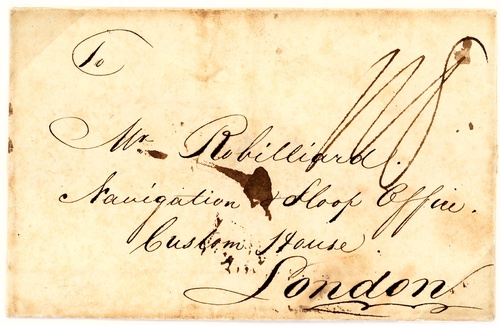 To
Mr Robilliard.
Navigation & Sloop Office.
Custom House.
London